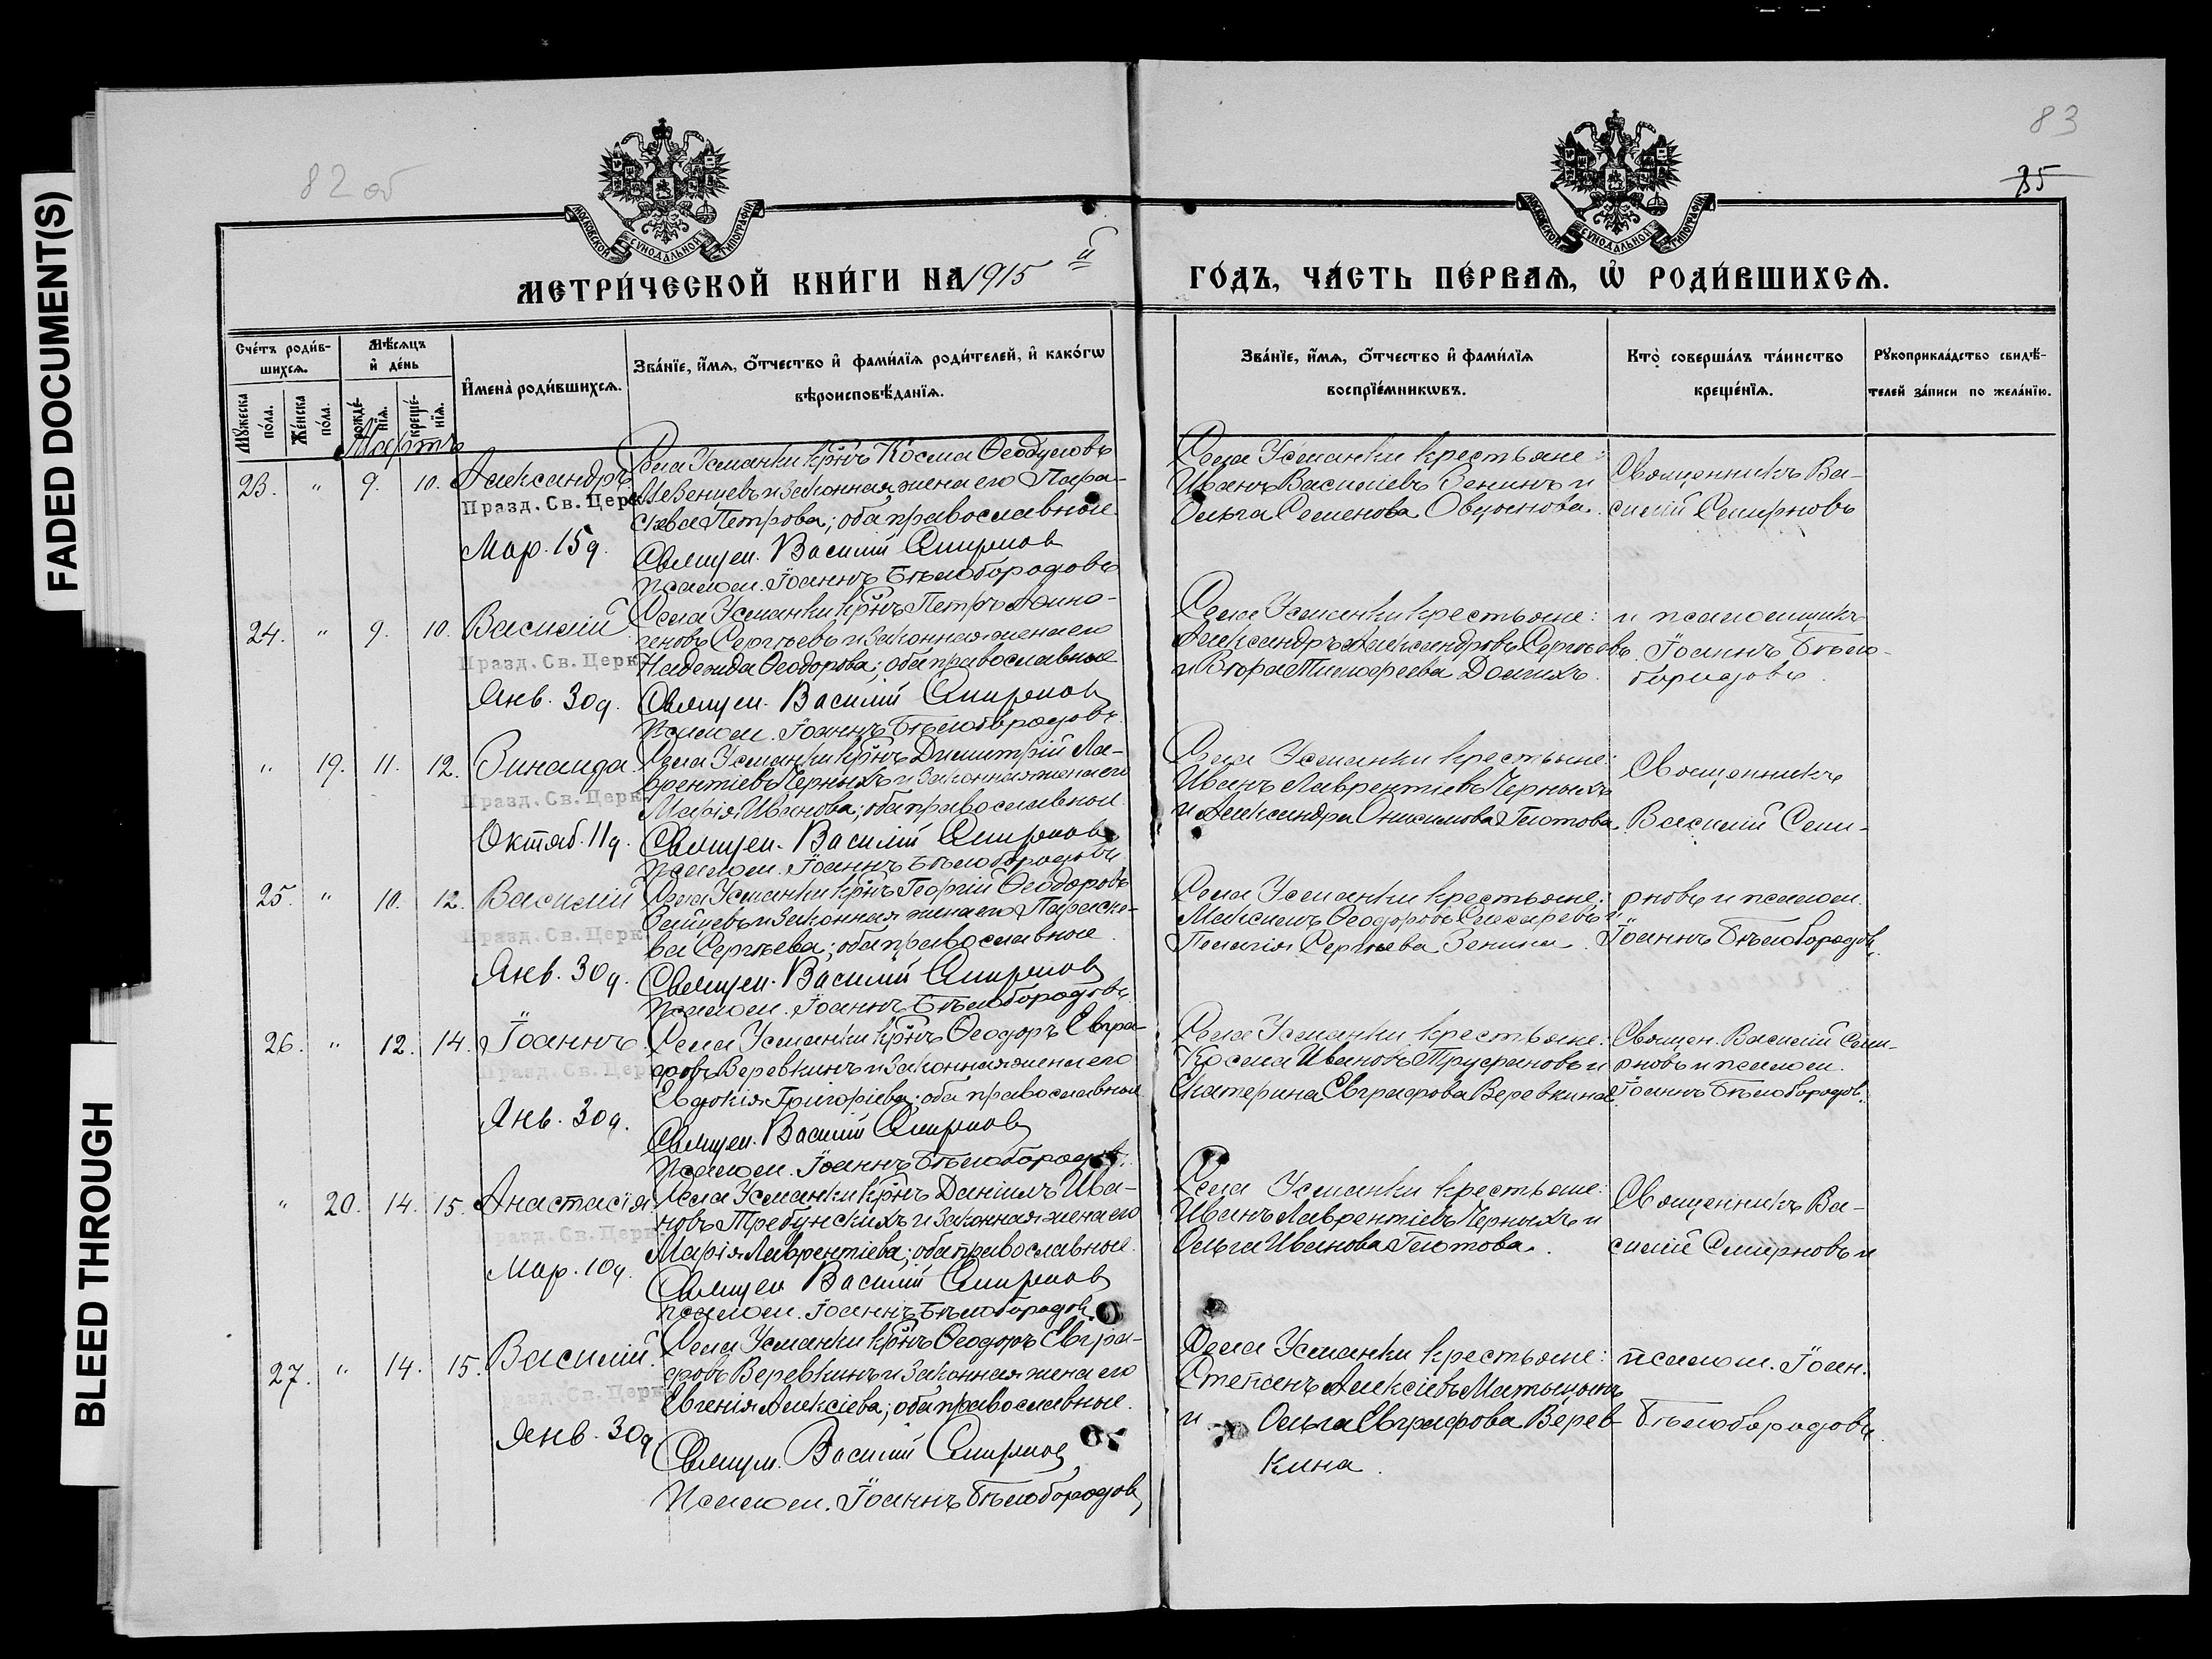 FADED DOCUMENT(S)
BLEED THROUGH
82 об
83
85
МОСКОВСКОЙ СѴНОДАЛЬНОЙ ТИПОГРАФІИ
МОСКОВСКОЙ СѴНОДАЛЬНОЙ ТИПОГРАФІИ
МЕТРИ́ЧЕСКОЙ КНИ́ГИ НА 1915 й ГО́ДЪ, ЧА́СТЬ ПЕ́РВАѦ, Ѡ҆ РОДИ́ВШИХСѦ.
Сче́тъ роди́в-
шихсѧ.
Мꙋ́жеска по́ла.
Же́нска по́ла.
Мѣ́сѧцъ
и҆ де́нь
рожде́-нїѧ.
креще́-нїѧ.
И҆мена̀ роди́вшихсѧ.
Зва́нїе, и҆́мѧ, ѻ҆́тчество и҆ фами́лїѧ роди́телей, и҆ како́гѡ
вѣроисповѣ́данїѧ.
Зва́нїе, и҆́мѧ, ѻ҆́тчество и҆ фами́лїѧ
воспрїе́мникѡвъ.
Кто̀ соверша́лъ та́инство
креще́нїѧ.
Рꙋкоприкла́дство свидѣ́-
телей за́писи по жела́нїю.
Мартъ
23. " 9. 10. Александръ
Празд. Св. Церк.
Мар. 15 д.
Села Усманки кр-нъ Косма Ѳеодуловъ
Мезенцевъ и законная жена его Пара-
скева Петрова; оба православные
Священ. Василій Смирновъ
Псалом. Іоаннъ Бѣлобородовъ
Села Усманки крестьяне:
Иванъ Василіевъ Зенинъ и
Ольга Семенова
Священникъ Ва-
силій Смирновъ
24. " 9. 10. Василій
Празд. Св. Церк.
Янв. 30 д.
Села Усманки кр-нъ Петръ Аѳино-
геновъ Сергѣевъ и законная жена его
Надежда Ѳеодорова; оба православные
Священ. Василій Смирновъ
Псалом. Іоаннъ Бѣлобородовъ
Села Усманки крестьяне:
Александръ Александровъ Сергѣевъ
и Тимоѳеева Долгихъ.
и псаломщикъ
Іоаннъ Бѣло-
бородовъ.
" 19. 11. 12. Зинаида
Празд. Св. Церк.
Октяб. 11 д.
Села Усманки кр-нъ Димитрій Ла-
врентіевъ Черныхъ и законная жена его
Марія Иванова; оба православные
Священ. Василій Смирновъ
Псалом. Іоаннъ Бѣлобородовъ
Села Усманки крестьяне:
Иванъ Лаврентіевъ Черныхъ
и Александра Онисимова Глотова.
Священникъ
Василій Сми-
25. " 10. 12. Василій
Празд. Св. Церк.
Янв. 30 д.
Села Усманки кр-нъ Георгій Ѳеодоровъ
Зайцевъ и законная жена его Параске-
ва Сергѣева; оба православные.
Священ. Василій Смирновъ
Псалом. Іоаннъ Бѣлобородовъ
Села Усманки крестьяне:
Максимъ Ѳеодоровъ Слесаревъ и
Пелагія Сергѣева Зенина.
рновъ и псалом.
Іоаннъ Бѣлобородов.
26. " 12. 14. Іоаннъ
Празд. Св. Церк.
Янв. 30 д.
Села Усманки кр-нъ Ѳеодоръ Евгра-
фовъ Веревкинъ и законная жена его
Евдокія Григоріева; оба православные
Священ. Василій Смирновъ
Псалом. Іоаннъ Бѣлобородов.
Села Усманки крестьяне:
Косма Ивановъ Труфановъ и
Екатерина Евграфова Веревкина
Священ. Василій Сми-
рновъ и псалом.
Іоаннъ Бѣлобородов.
" 20. 14. 15. Анастасія
Празд. Св. Церк.
Мар. 10 д.
Села Усманки кр-нъ Даніилъ Ива-
новъ Требунскихъ и законная жена его
Марія Лаврентіева; оба православные.
Священ Василій Смирновъ
Псалом. Іоаннъ Бѣлобородов
Села Усманки крестьяне:
Иванъ Лаврентіевъ Черныхъ и
Ольга Иванова Глотова.
Священникъ Ва-
силій Смирновъ и
27. " 14. 15. Василій.
Празд. Св. Церк.
Янв. 30 д
Села Усманки кр-нъ Ѳеодоръ Евгра-
фовъ Веревкинъ и законная жена его
Евгенія Алексіева; оба православные.
Священ. Василій Смирновъ
Псалом. Іоаннъ Бѣлобородовъ
Села Усманки крестьяне:
Степанъ Алексіевъ Матыцинъ
и Ольга Евграфова Верев-
кина.
псалом. Іоан.
Бѣлобородовъ.